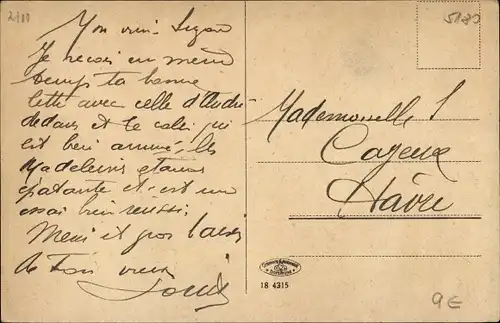 2411
5180
Mon vieux Suzon
Je reçois en même
temps ta bonne
lettre avec celle d'André
dedans et le colis qui
est bien arrivé les
Madeleines étaient
épatante et c'est un
essai bien réussi.
Merci et gros baiser
de ton vieux
Louis
Mademoiselle S
Cayeux
Hâvre
18 4315
9€